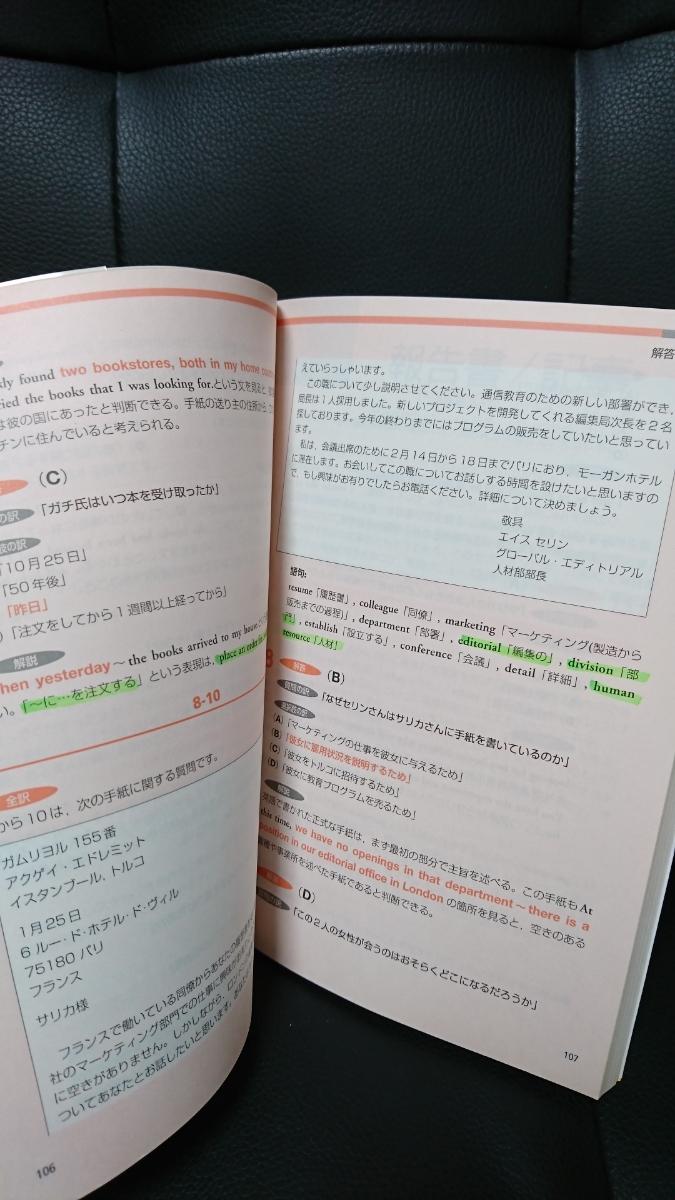 kly found two bookstores, both in my home coun
ried the books that I was looking for.という文を見ると、
は彼の国にあったと判断できる。手紙の送り主の住所から、
チンに住んでいると考えられる。
(C)
の訳 「ガチ氏はいつ本を受け取ったか」
肢の訳
「10月25日」
「50年後」
「昨日」
)「注文をしてから1週間以上経ってから」
解説
hen yesterday〜the books arrived to my house.
い。「〜に…を注文する」という表現は、place an order
8-10
全訳
から10は、次の手紙に関する質問です。
ガムリヨル 155番
アクゲイ・エドレミット
イスタンブール, トルコ
1月25日
6 ルー・ド・ホテル・ド・ヴィル
75180 パリ
フランス
サリカ様
フランスで働いている同僚からあなたの
社のマーケティング部門での仕事に興味
に空きがありません。しかしながら、ロンドン
ついてあなたとお話したいと思います。
106
解答
えていらっしゃいます。
この職について少し説明させてください。通信教育のための新しい部署ができ、
局長は1人採用しました。新しいプロジェクトを開発してくれる編集局次長を2名
探しております。今年の終わりまでにはプログラムの販売をしていたいと思ってい
ます。
私は、会議出席のために2月14日から18日までパリにおり、モーガンホテル
に滞在します。お会いしてこの職についてお話しする時間を設けたいと思いますの
で、もし興味がおありでしたらお電話ください。詳細について決めましょう。
敬具
エイス セリン
グローバル・エディトリアル
人材部部長
語句:
resume「履歴書」, colleague「同僚」, marketing「マーケティング(製造から
販売までの過程)」, department「部署」, editorial「編集の」, division「部
門」, establish「設立する」, conference「会議」, detail「詳細」, human
resource「人材」
8 解答 (B)
質問の訳 「なぜセリンさんはサリカさんに手紙を書いているのか」
選択肢の訳
(A)「マーケティングの仕事を彼女に与えるため」
(B)「彼女に雇用状況を説明するため」
(C)「彼女をトルコに招待するため」
(D)「彼女に教育プログラムを売るため」
解説
英語で書かれた正式な手紙は、まず最初の部分で主旨を述べる。この手紙も At
this time, we have no openings in that department〜there is a
position in our editorial office in London の箇所を見ると、空きのある
職種や事業所を述べた手紙であると判断できる。
(D)
「この2人の女性が会うのはおそらくどこになるだろうか」
107